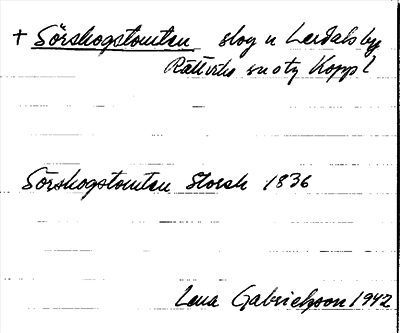 + Sörskogstomten skog u Lerdals by
Rättviks sn otg Koppl
Sörskogstomten Storsk 1836
Lena Gabrielsson 1942